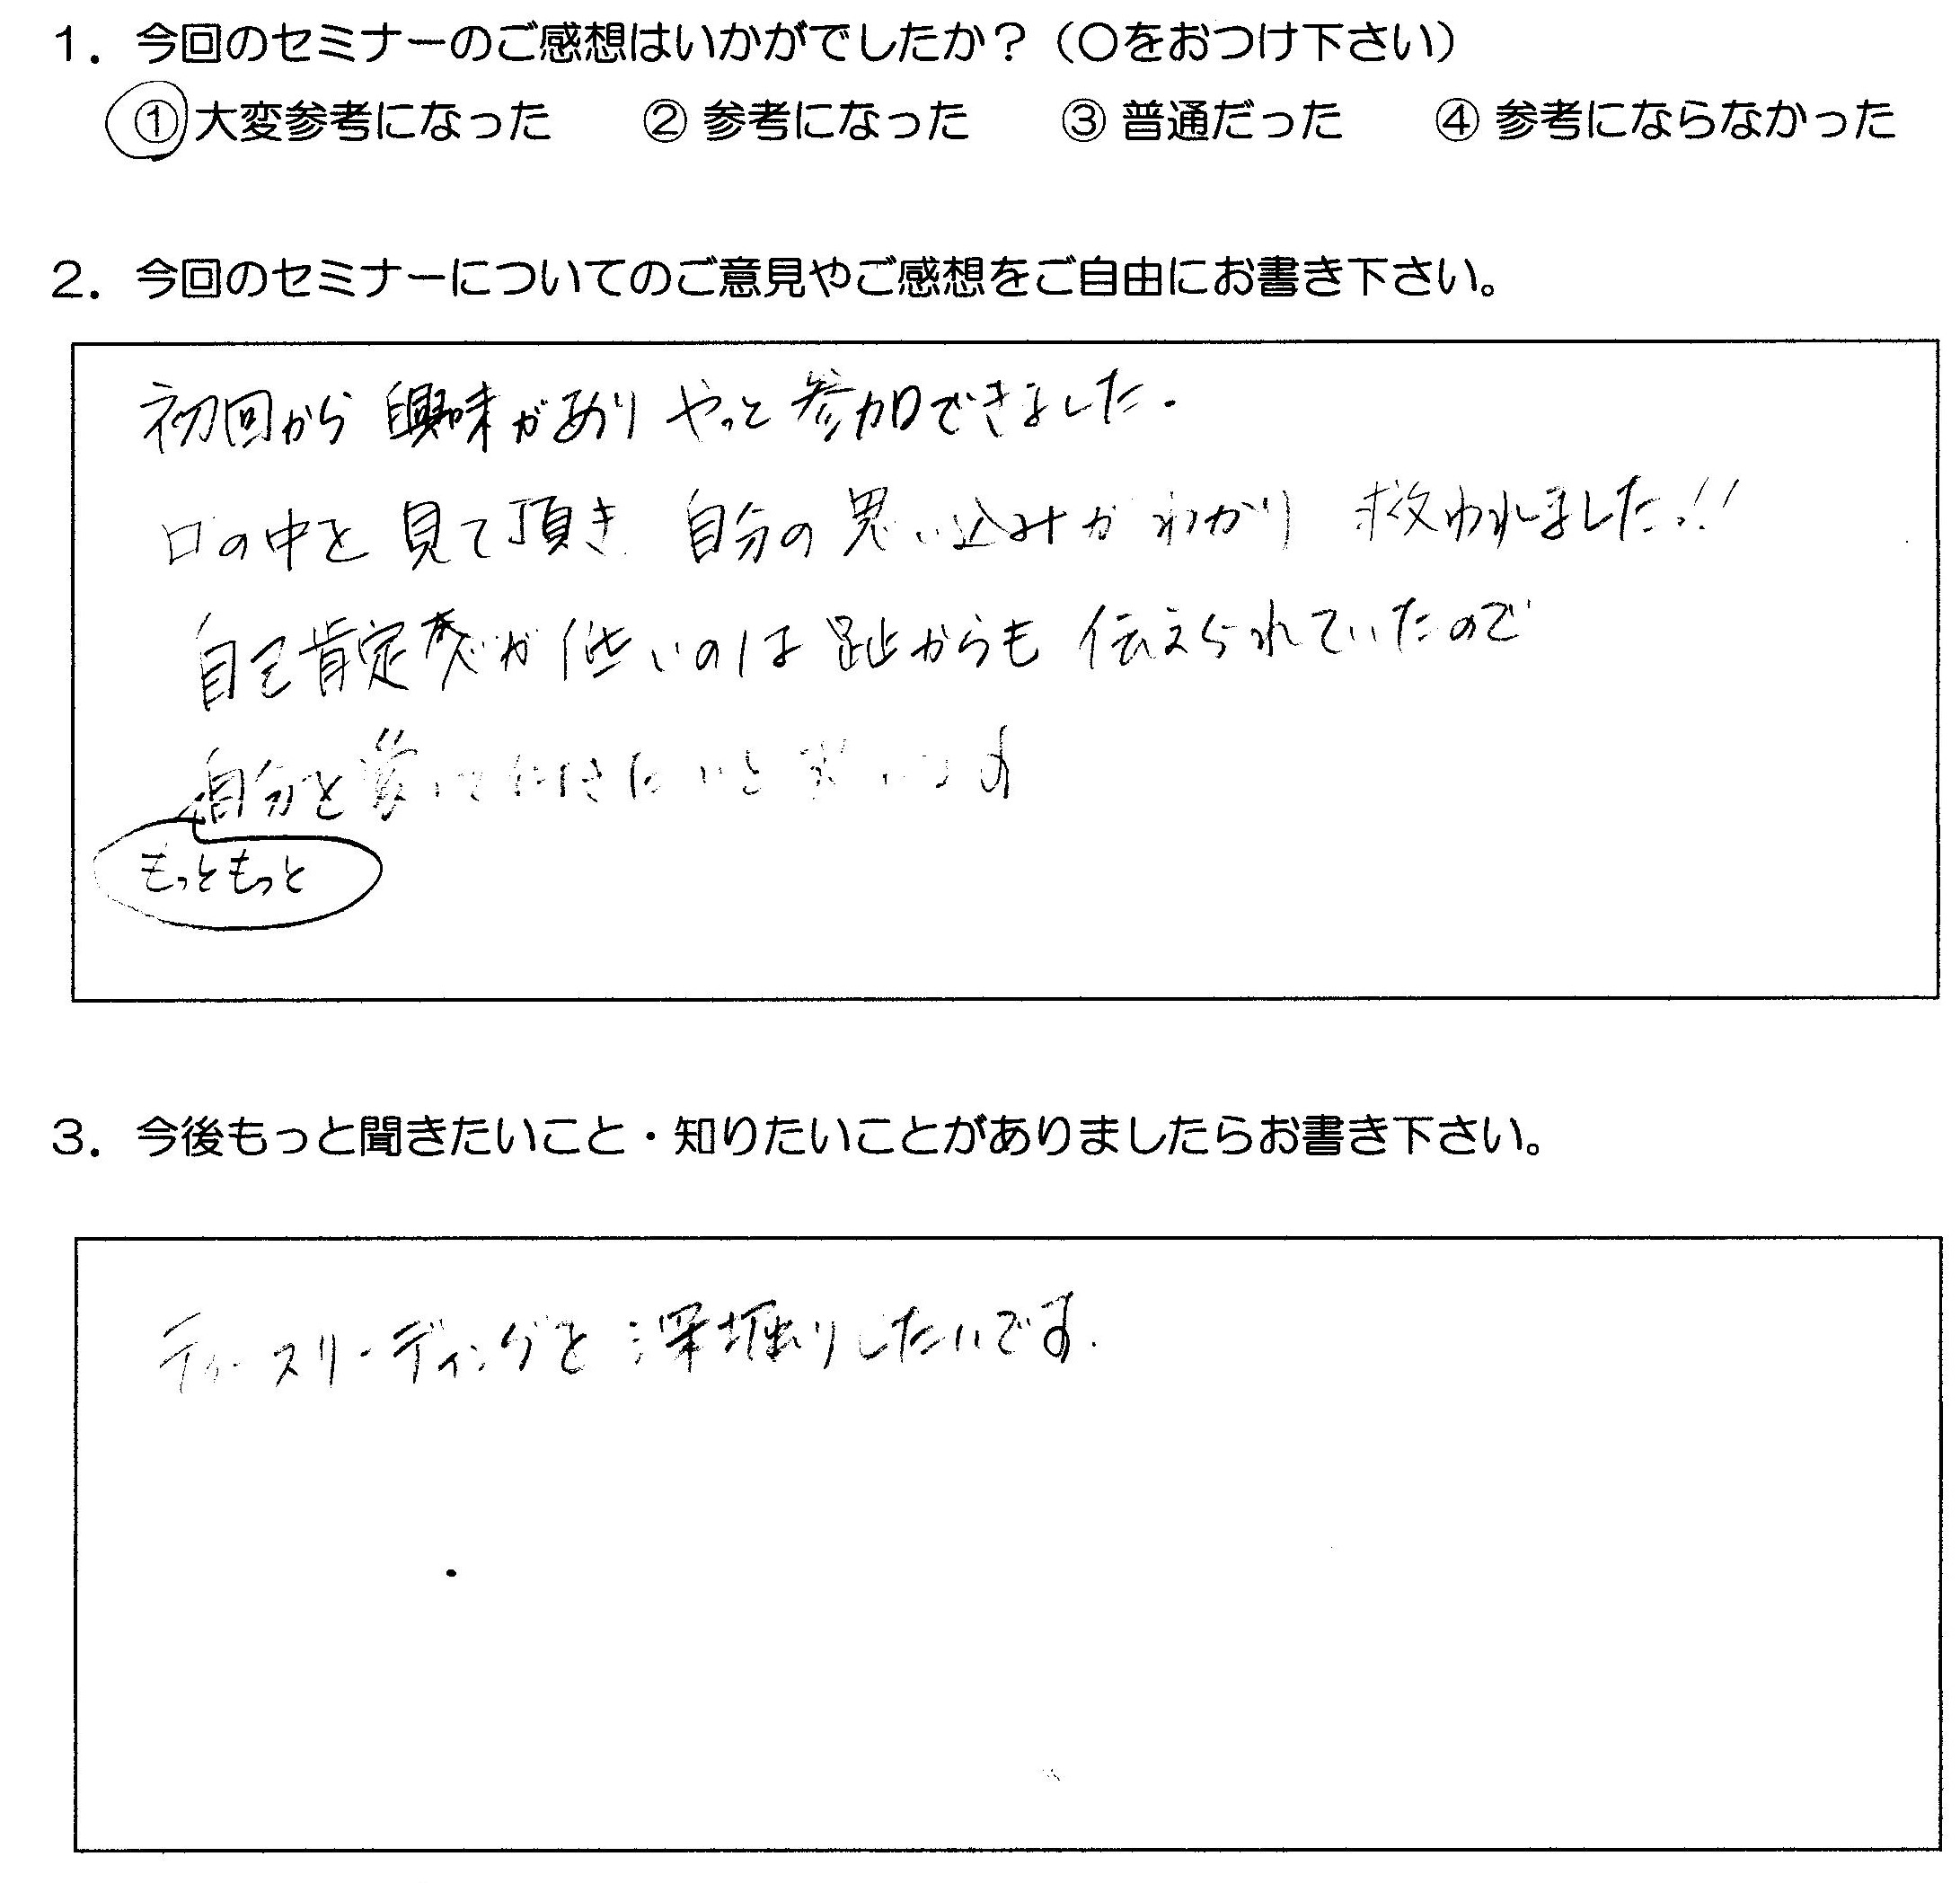 1. 今回のセミナーのご感想はいかがでしたか？（〇をおつけ下さい）
① 大変参考になった ② 参考になった ③ 普通だった ④ 参考にならなかった
2. 今回のセミナーについてのご意見やご感想をご自由にお書き下さい。
初回から興味がありやっと参加できました.
口の中を見て頂き 自分の思い込みがわかり 救われましたっ!!
自己肯定感が低いのは趾からも伝えられていたので
自分を いと思います
もっともっと
3. 今後もっと聞きたいこと・知りたいことがありましたらお書き下さい。
ティースリーディングを深堀りしたいです.